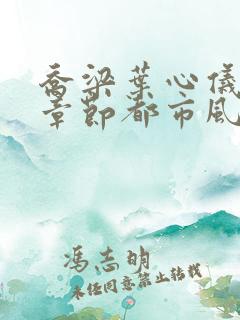 乔梁葉心儀
章節都市風
冯志明
未经同意禁止转载